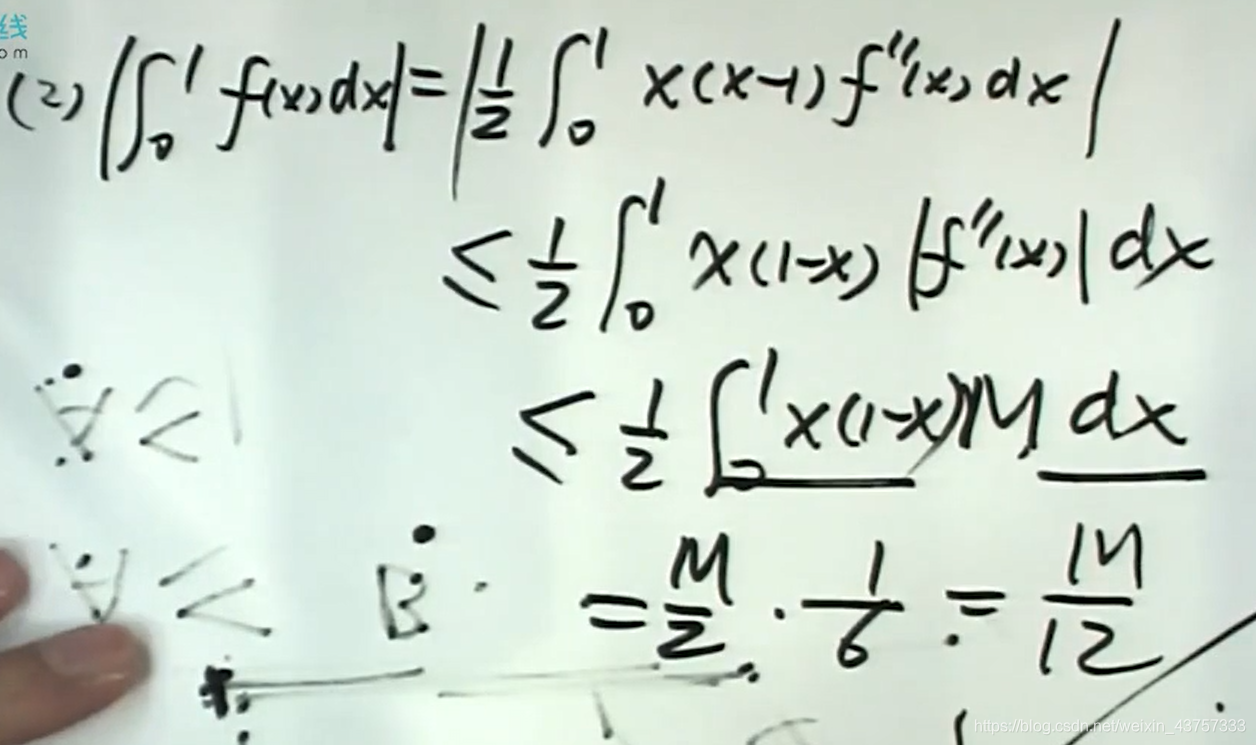 线
om
(2) |∫₀¹ f(x)dx| = |1/2 ∫₀¹ x(x-1) f''(x) dx|
≤ 1/2 ∫₀¹ x(1-x) |f''(x)| dx
≤ 1/2 ∫₀¹ x(1-x) M dx
= M/2 · 1/6 = M/12
B
https://blog.csdn.net/weixin_43757333